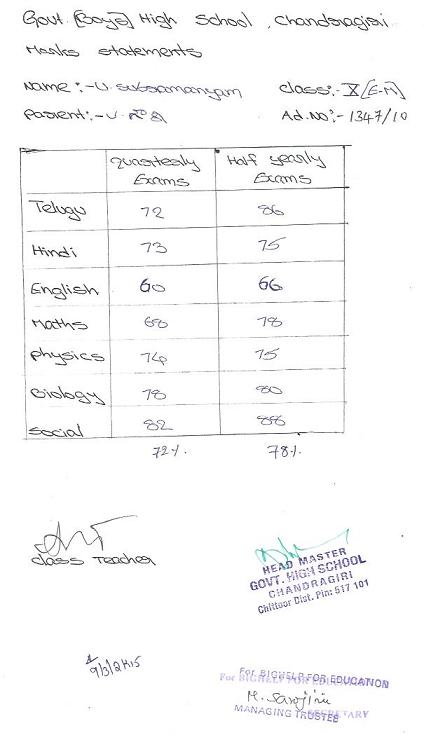 Govt. (Boys) High School, Chandragiri
Marks statements
Name :- U. Subramanyam Class:- X [E-M]
Parent:- U. Ad.No:- 1347/10
Quarterly Exams Half yearly Exams
Telugu 72 86
Hindi 73 75
English 60 66
Maths 68 78
Physics 74 75
Biology 78 80
Social 82 88
72% 78%
Class Teacher
HEAD MASTER
GOVT. HIGH SCHOOL
CHANDRAGIRI
Chittoor Dist. Pin: 517 101
9/3/2K15
For BIGHELP FOR EDUCATION
For BIGHELP FOR EDUCATION
M. Sarojini
MANAGING TRUSTEE
SECRETARY